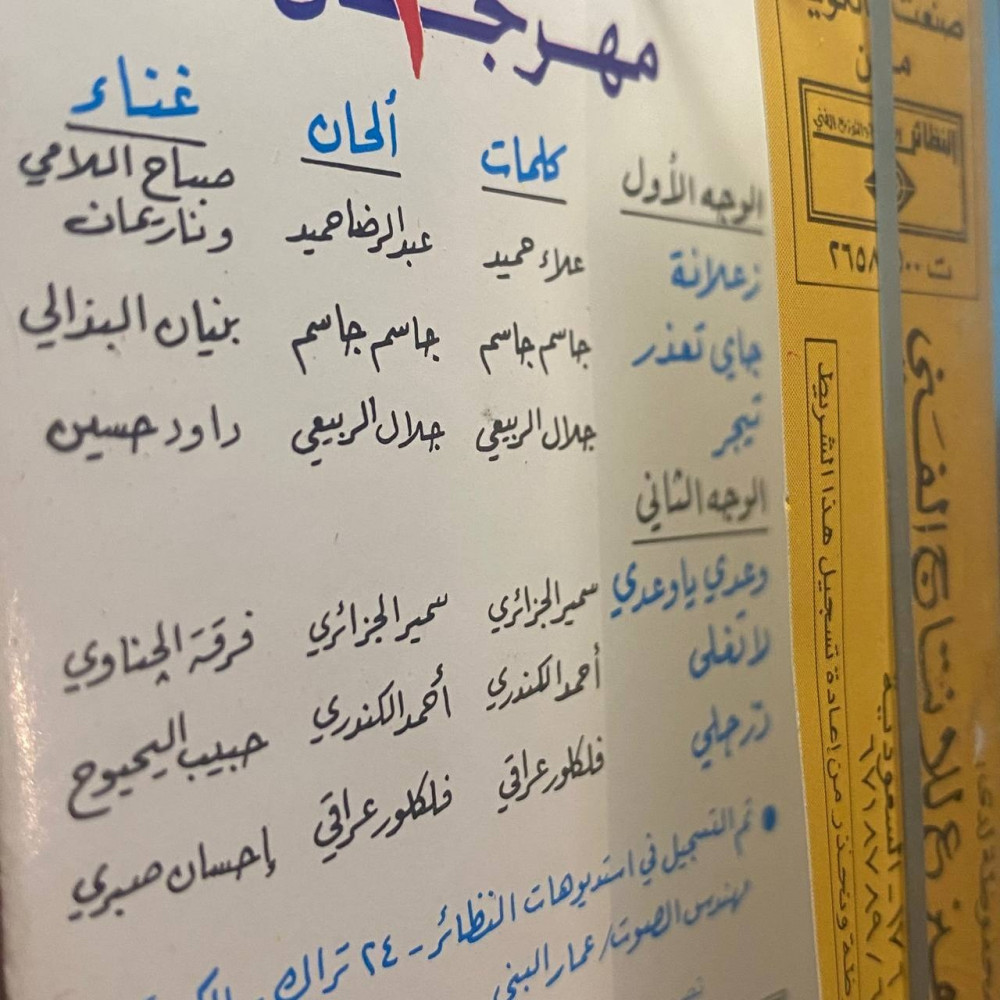 كلمات ألحان غناء
الوجه الأول
زعلانة علاء حميد عبدالرضا حميد صباح اللامي وناريمان
جاي تعذر جاسم جاسم جاسم جاسم بنيان البذالي
تيجر جلال الربيعي جلال الربيعي داود حسين
الوجه الثاني
وعدي ياوعدي سمير الجزائري سمير الجزائري فرقة الجناوي
لا تغلى أحمد الكندري أحمد الكندري حبيب اليحيوح
ترجلي فلكلور عراقي فلكلور عراقي إحسان صبري
• تم التسجيل في استديوهات النظائر - ٢٤ تراك
مهندس الصوت / عمار البني
النظائر
إعادة تسجيل هذا الشريط
للإنتاج الفني
السعودية